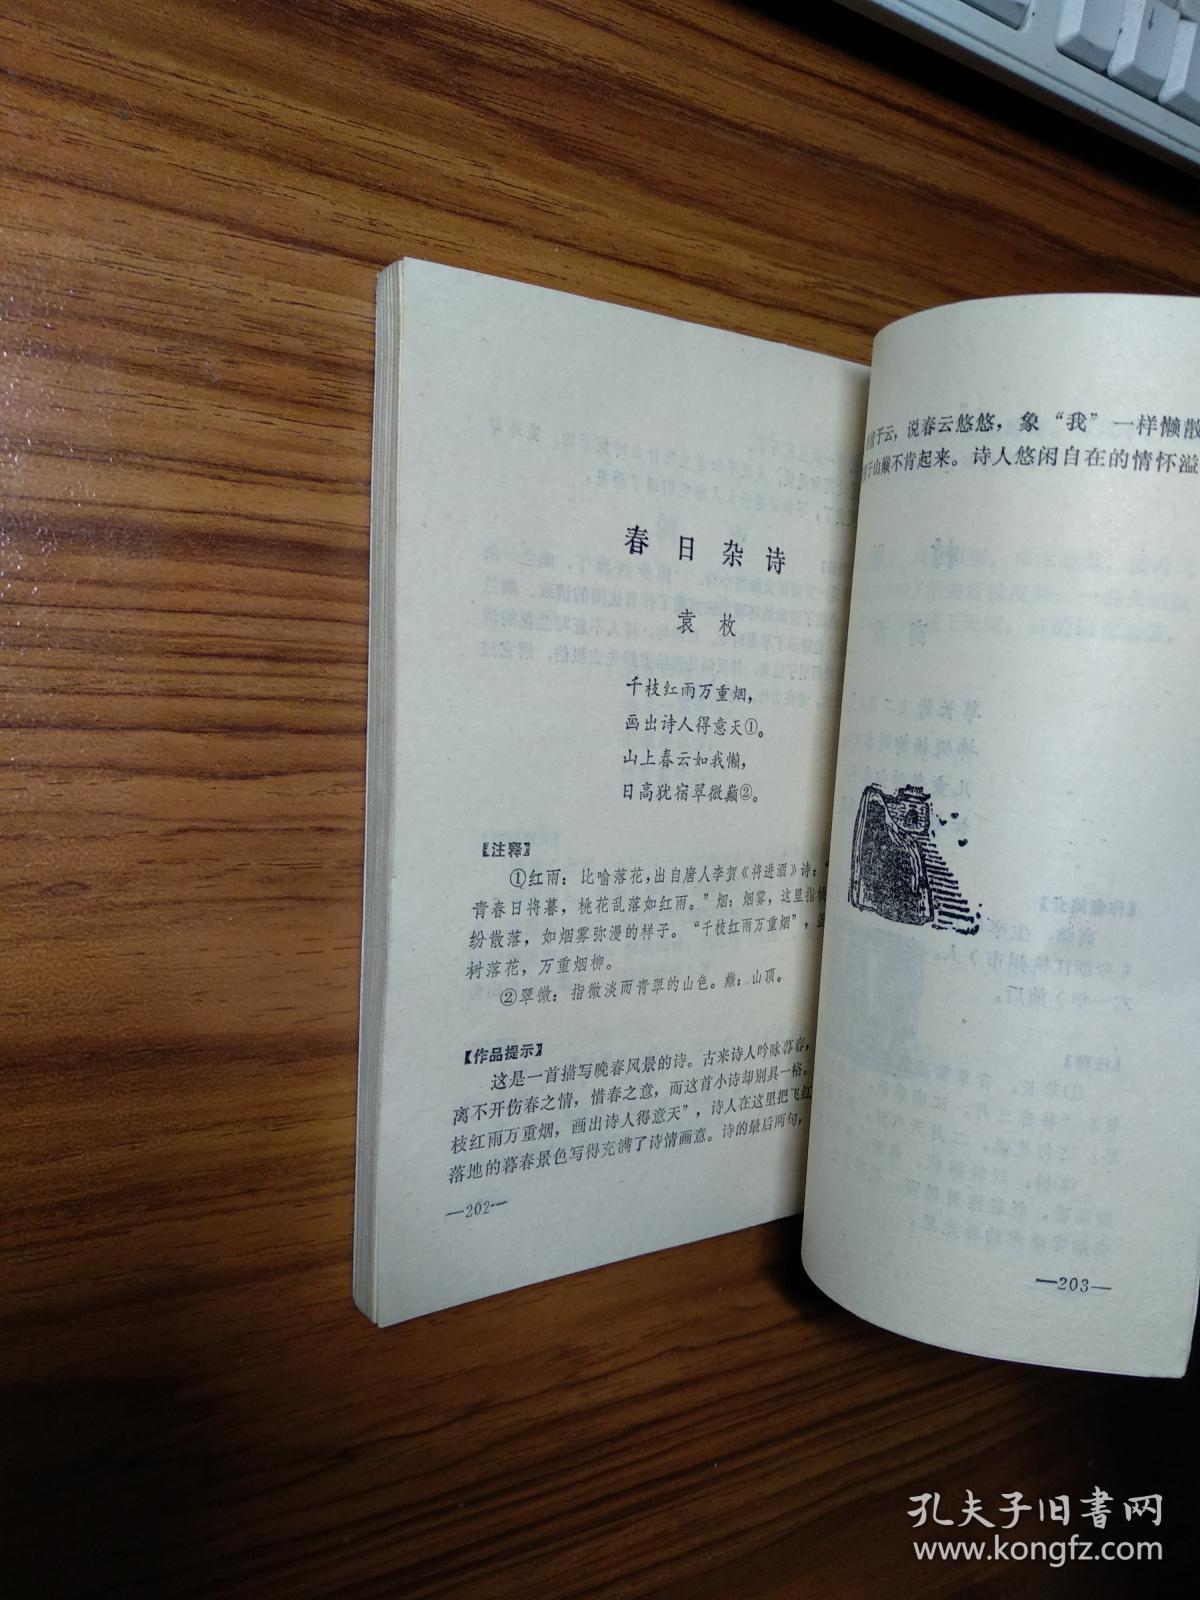 春日杂诗
袁枚
千枝红雨万重烟，
画出诗人得意天①。
山上春云如我懒，
日高犹宿翠微巅②。
【注释】
①红雨：比喻落花，出自唐人李贺《将进酒》诗：“
青春日将暮，桃花乱落如红雨。”烟：烟雾，这里指
纷散落，如烟雾弥漫的样子。“千枝红雨万重烟”，
树落花，万重烟柳。
②翠微：指微淡而青翠的山色。巅：山顶。
【作品提示】
这是一首描写晚春风景的诗。古来诗人吟咏暮春，
离不开伤春之情，惜春之意，而这首小诗却别具一格。
枝红雨万重烟，画出诗人得意天”，诗人在这里把飞红
落地的暮春景色写得充满了诗情画意。诗的最后两句，
—202—
情于云，说春云悠悠，象“我”一样懒散
于山巅不肯起来。诗人悠闲自在的情怀溢
—203—
孔夫子旧书网
www.kongfz.com